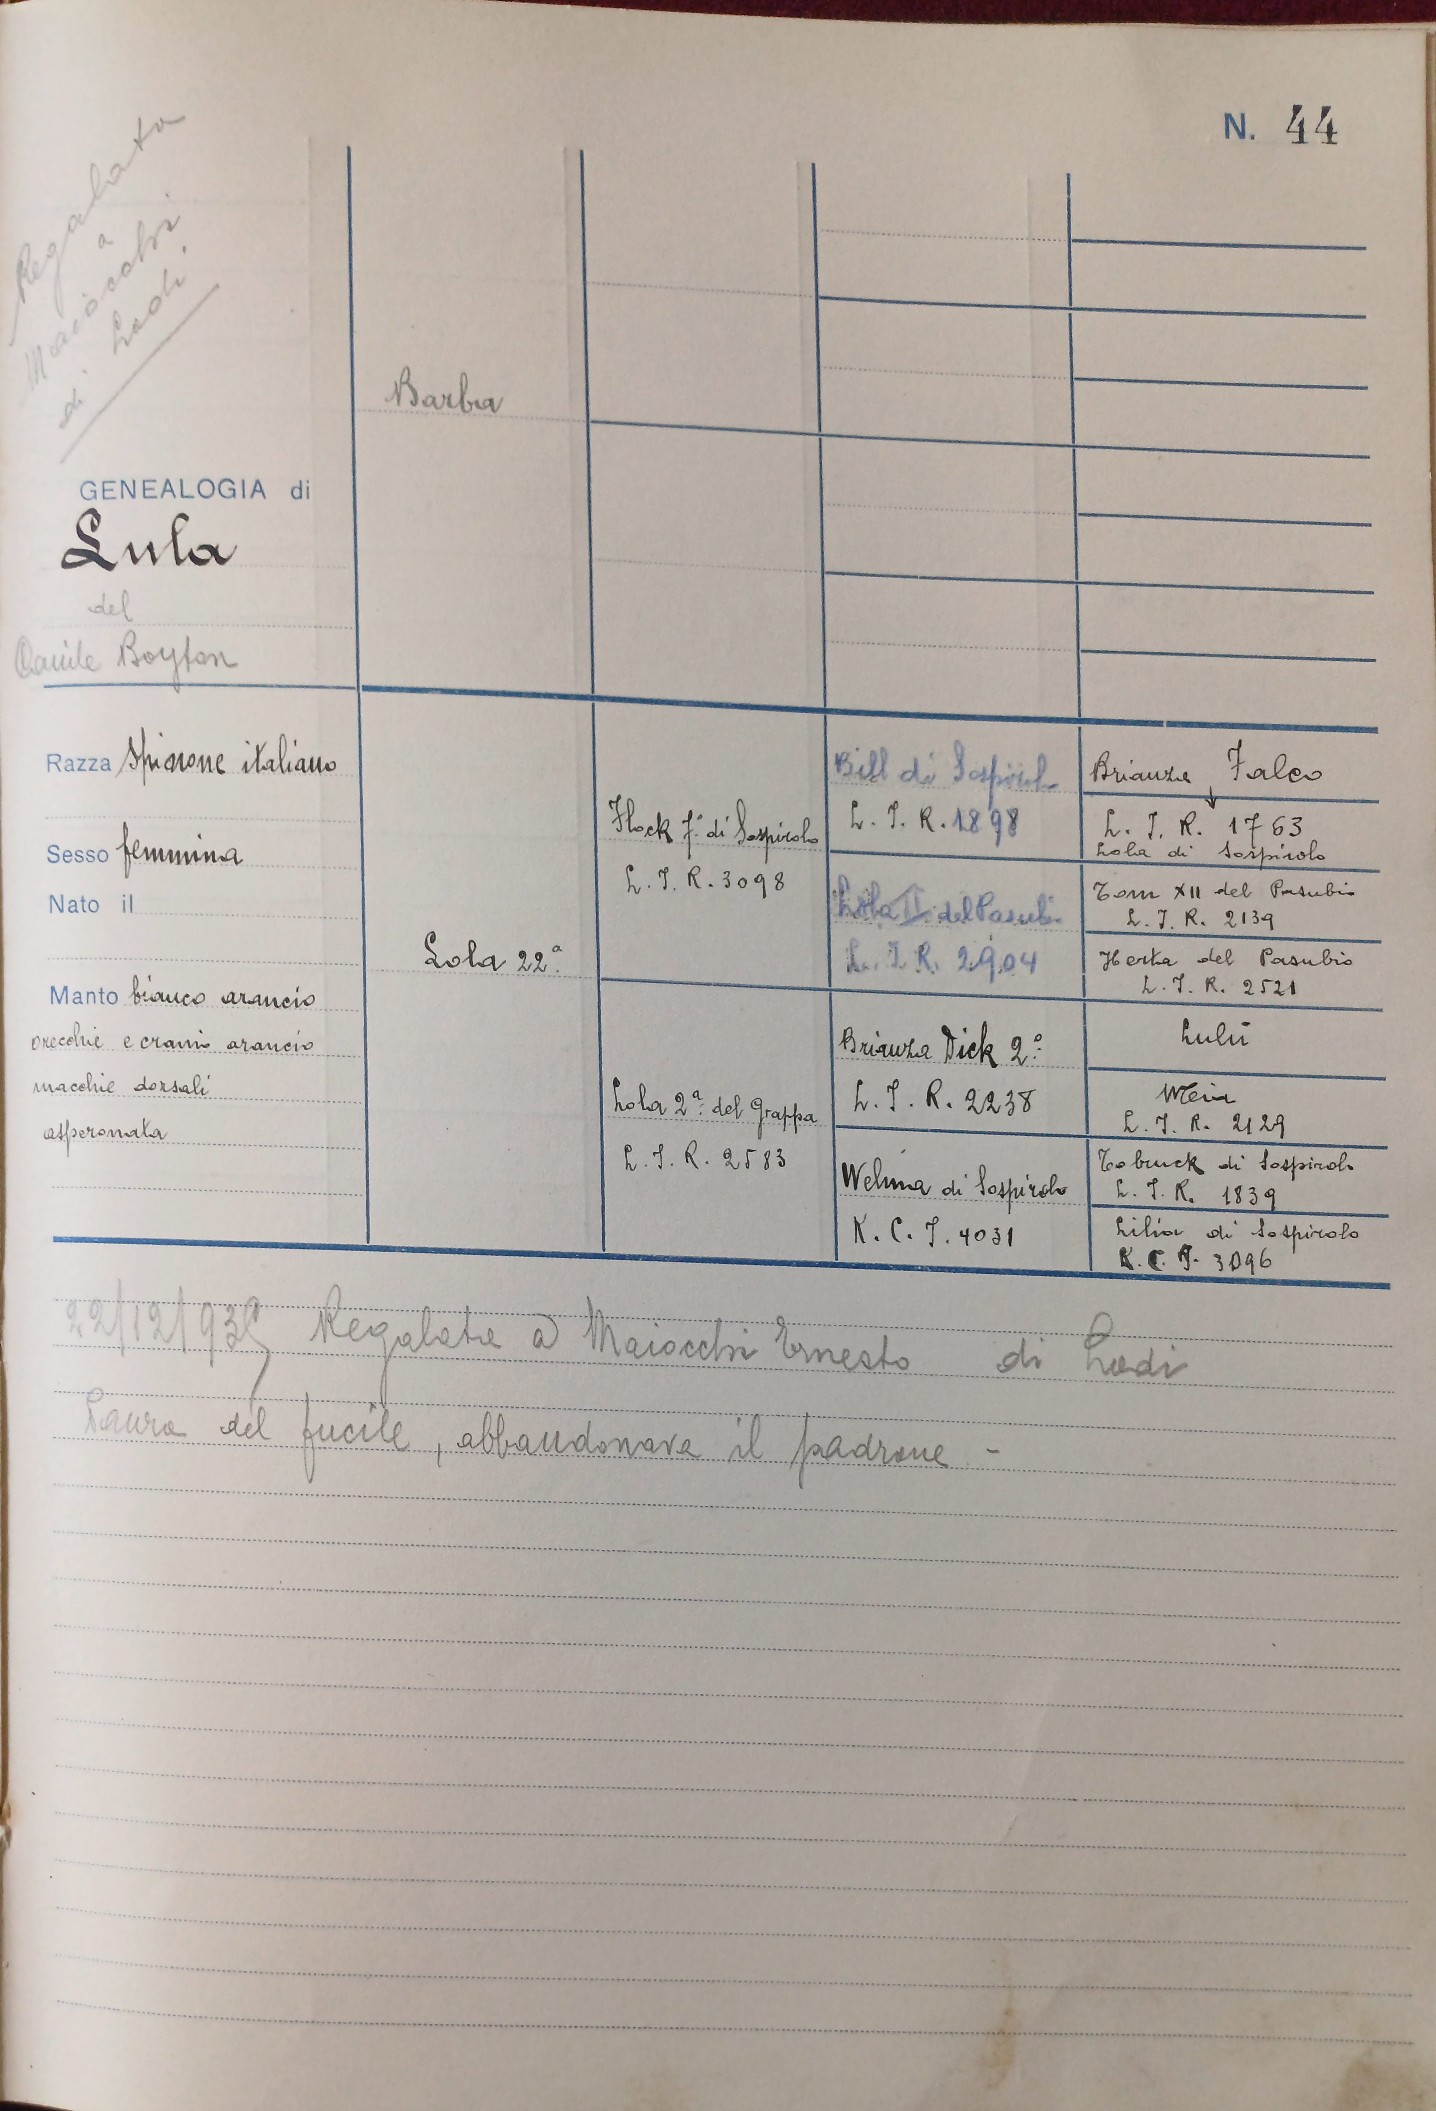 N. 44
Regalata
a
Maiocchi
di Lodi
GENEALOGIA di
Lula
del
Canile Boyton
Razza Spinone italiano
Sesso femmina
Nato il
Manto bianco arancio
orecchie e cranio arancio
macchie dorsali
asperonata
Barba
Lola 22ª.
Flock 7º. di Sospirolo
L. I. R. 3098
Lola 2ª. del Grappa
L. I. R. 2583
Bill di Sospirolo
L. I. R. 1898
Lola II. del Pasubio
L. I. R. 2904
Brianza Dick 2º.
L. I. R. 2238
Welma di Sospirolo
K. C. I. 4031
Brianza Falco
L. I. R. 1763
Lola di Sospirolo
Tom XII del Pasubio
L. I. R. 2139
Herta del Pasubio
L. I. R. 2521
Lulù
L. I. R. 2129
Tobruck di Sospirolo
L. I. R. 1839
Lilia di Sospirolo
K. C. I. 3096
22/12/939 Regalata a Maiocchi Ernesto di Lodi
del fucile, abbandonava il padrone -